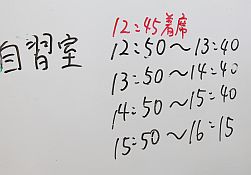 自習室
12:45着席
12:50～13:40
13:50～14:40
14:50～15:40
15:50～16:15